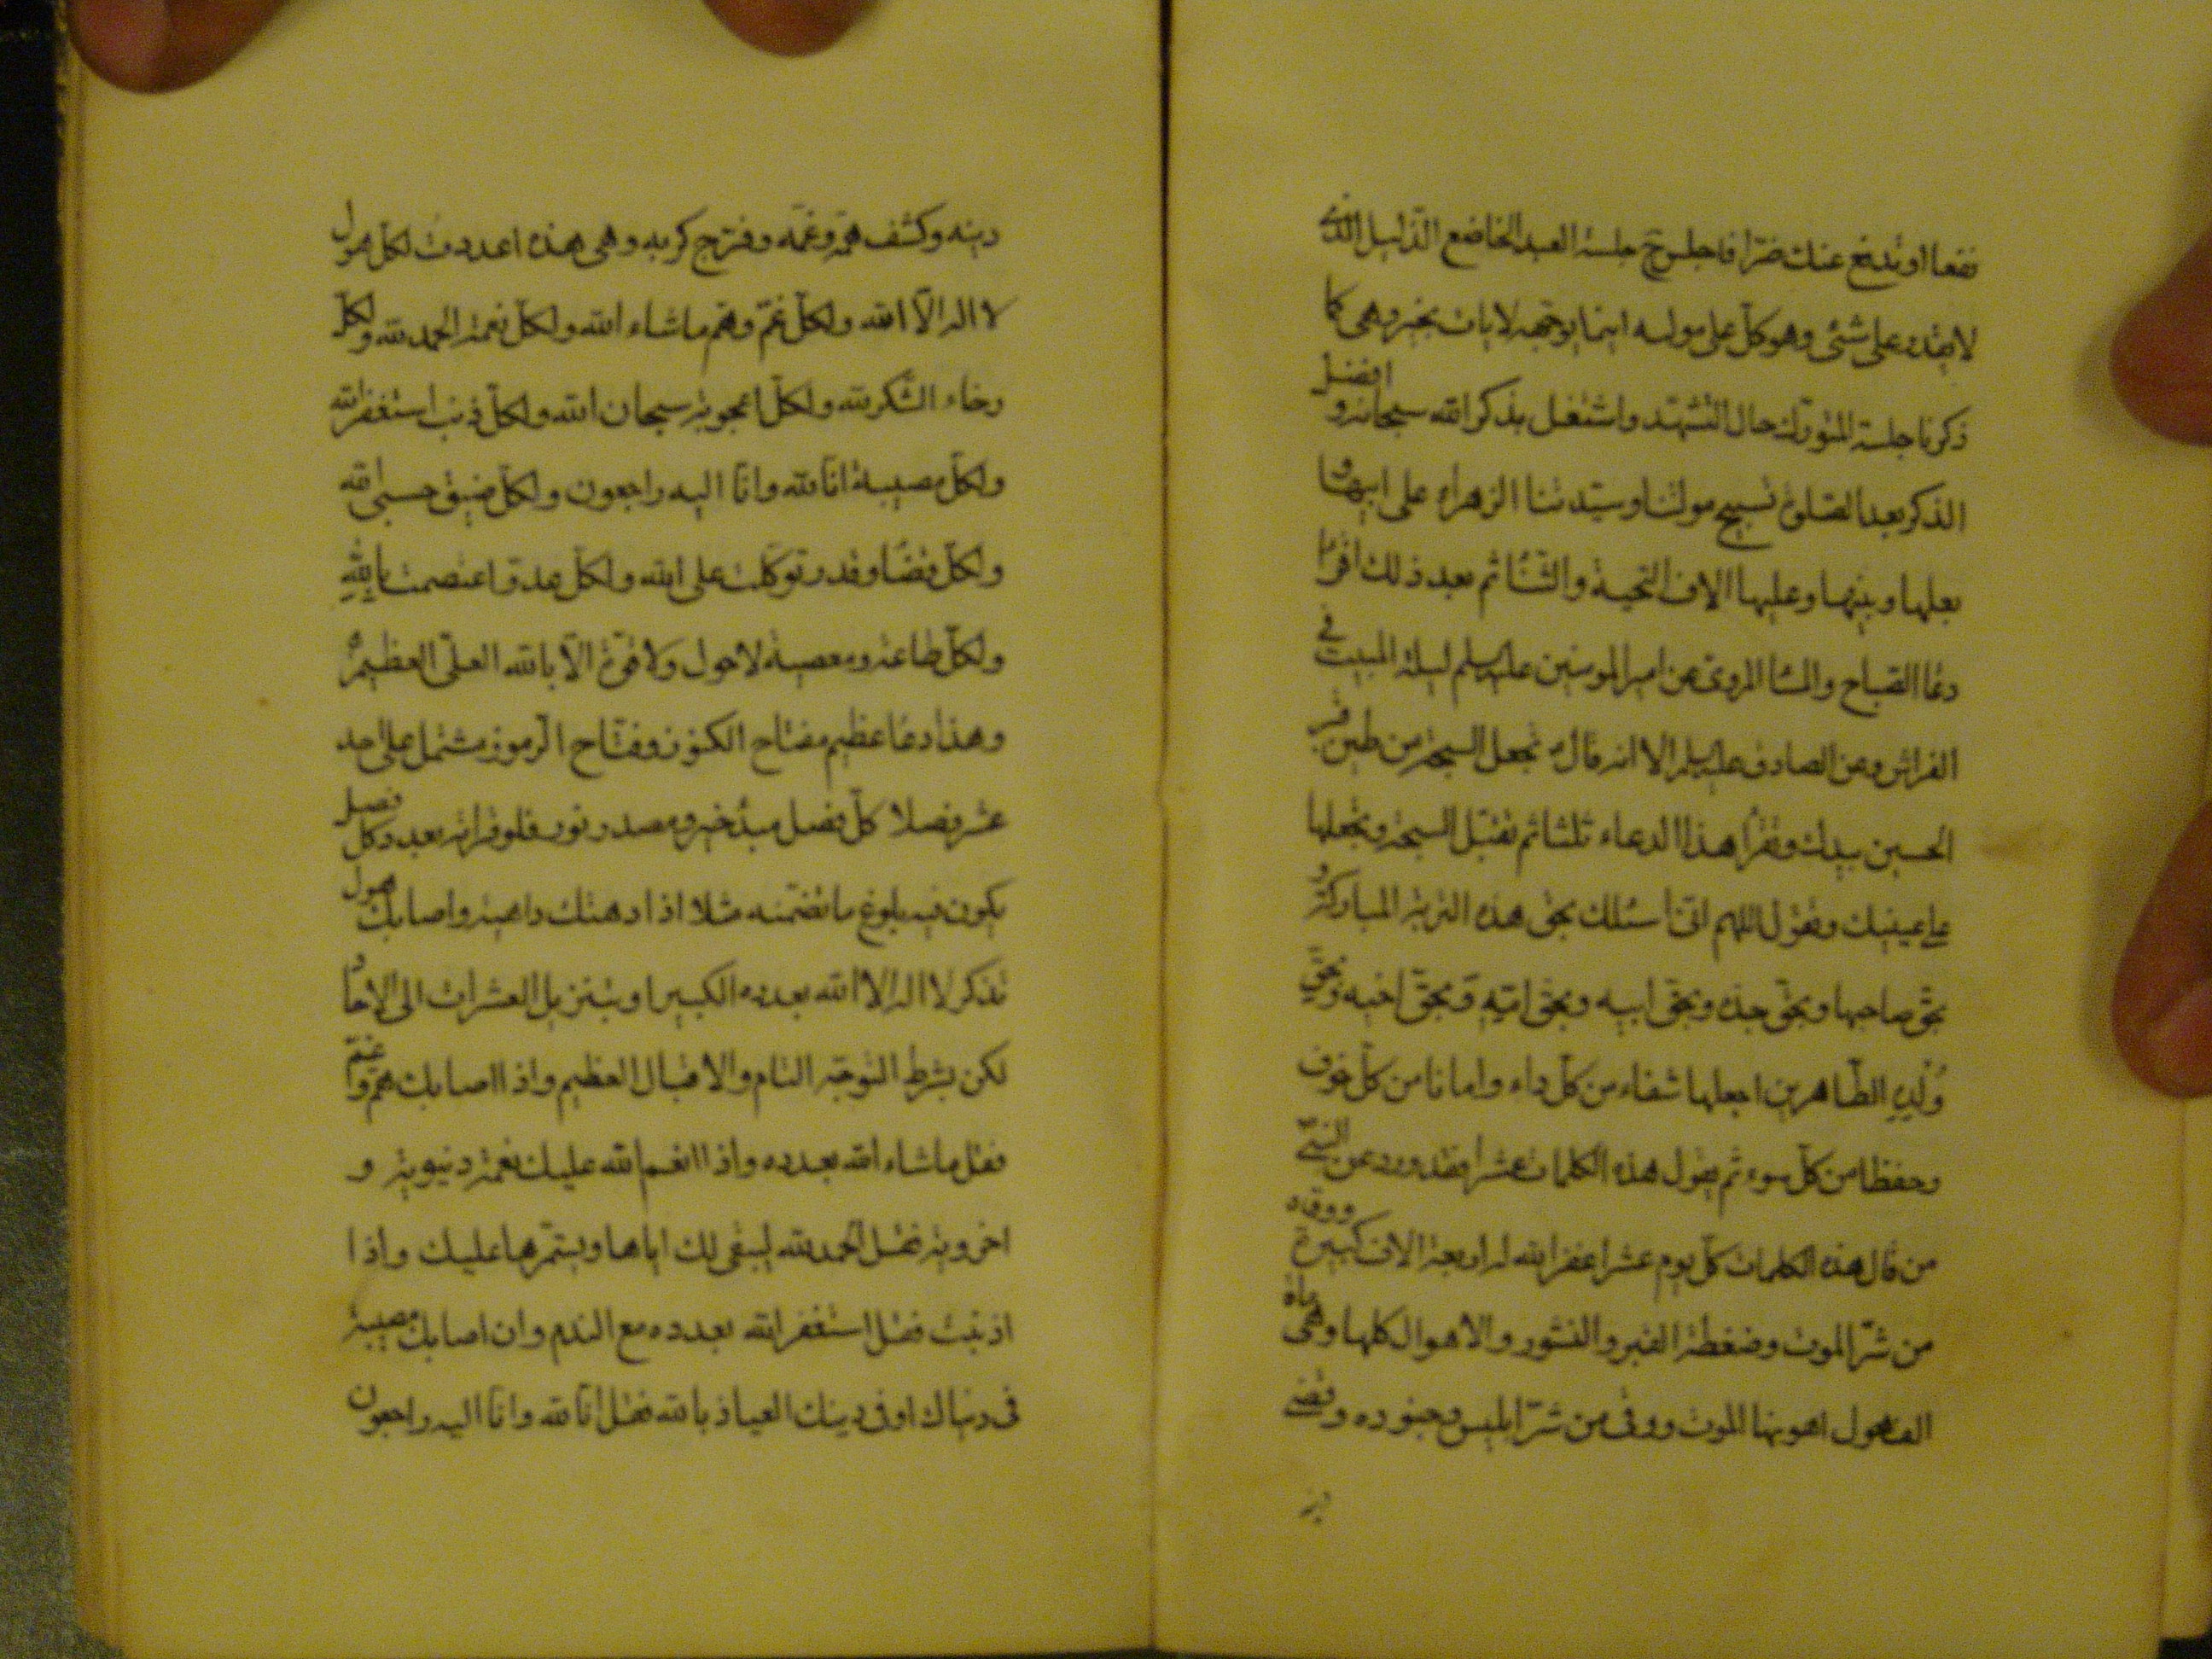 نفعا او تدفع عنك ضرّا فاجلس ح جلسة العبد الخاضع الذّليل الذى
لا يقدر على شئ وهو كلّ على موليه اينما يوجّهه لا يات بخير وهى كما
ذكرنا جلسة المتورّك حال التشهّد واشتغل بذكر الله سبحانه وافضل
الذكر بعد الصّلوة تسبيح مولتنا وسيّدتنا الزهراء على ابيها و
بعلها وبنيها وعليها الاف التحية والثّناء ثم بعد ذلك اقرا
دعا الصّباح والمسا المروى عن امير المومنين عليه السلم ليلة المبيت فى
الفراش وعن الصادق عليه السلم الا انه قال تجعل السبحة من طين قبر
الحسين بيدك وتقرأ هذا الدعاء ثلثا ثم تقبّل السبحة وتجعلها
على عينيك وتقول اللهم انّى اسئلك بحق هذه التربة المباركة و
بحقّ صاحبها وبحقّ جدّه وبحقّ ابيه وبحقّ امّه وبحقّ اخيه وبحقّ
وُلْدِه الطّاهرين اجعلها شفاء من كلّ داء وامانا من كلّ خوف
وحفظا من كلّ سوء ثم يقول هذه الكلمات عشرا فقد ورد عن النبىّ
من قال هذه الكلمات كلّ يوم عشرا غفر الله له اربعة الاف كبيرة ووقاه
من شرّ الموت وضغطة القبر والنشور والاهوال كلها وهى ماة
الف هول اهونها الموت ووقى من شرّ ابليس وجنوده وقضى
دينه
دينه وكشف همّه وغمّه وفرّج كربه وهى هذه اعددت لكلّ هول
لا اله الّا الله ولكلّ غمّ وهمّ ماشاء الله ولكلّ نعمة الحمد لله ولكلّ
رخاء الشّكر لله ولكلّ اعجوبة سبحان الله ولكلّ ذنب استغفر الله
ولكلّ مصيبة انّا لله وانّا اليه راجعون ولكلّ ضيق حسبى الله
ولكلّ قضا وقدر توكّلت على الله ولكلّ عدوّ اعتصمت بالله
ولكلّ طاعة ومعصية لا حول ولا قوّة الّا بالله العلىّ العظيم
وهذا دعا عظيم مفتاح الكنوز وفتّاح الرّموز مشتمل على احد
عشر فصلا كلّ فصل مبدُ خير ومصدر نور فلو قراته بعدد كل فصل
يكون فيه بلوغ ما تضمنه مثلا اذا دهتك داهية واصابك هول
تذكر لا اله الا الله بعدده الكبير او بتنزيل العشرات الى الاحاد
لكن بشرط التوجّه التام والاقبال العظيم واذا اصابك همّ وغمّ
فقل ماشاء الله بعدده واذا انعم الله عليك نعمة دنيوية و
اخروية فقل الحمد لله ليبقى لك اياها ويستمرّها عليك واذا
اذنبت فقل استغفر الله بعدده مع الندم وان اصابك مصيبة
فى دنياك او فى دينك العياذ بالله فقل انّا لله وانّا اليه راجعون